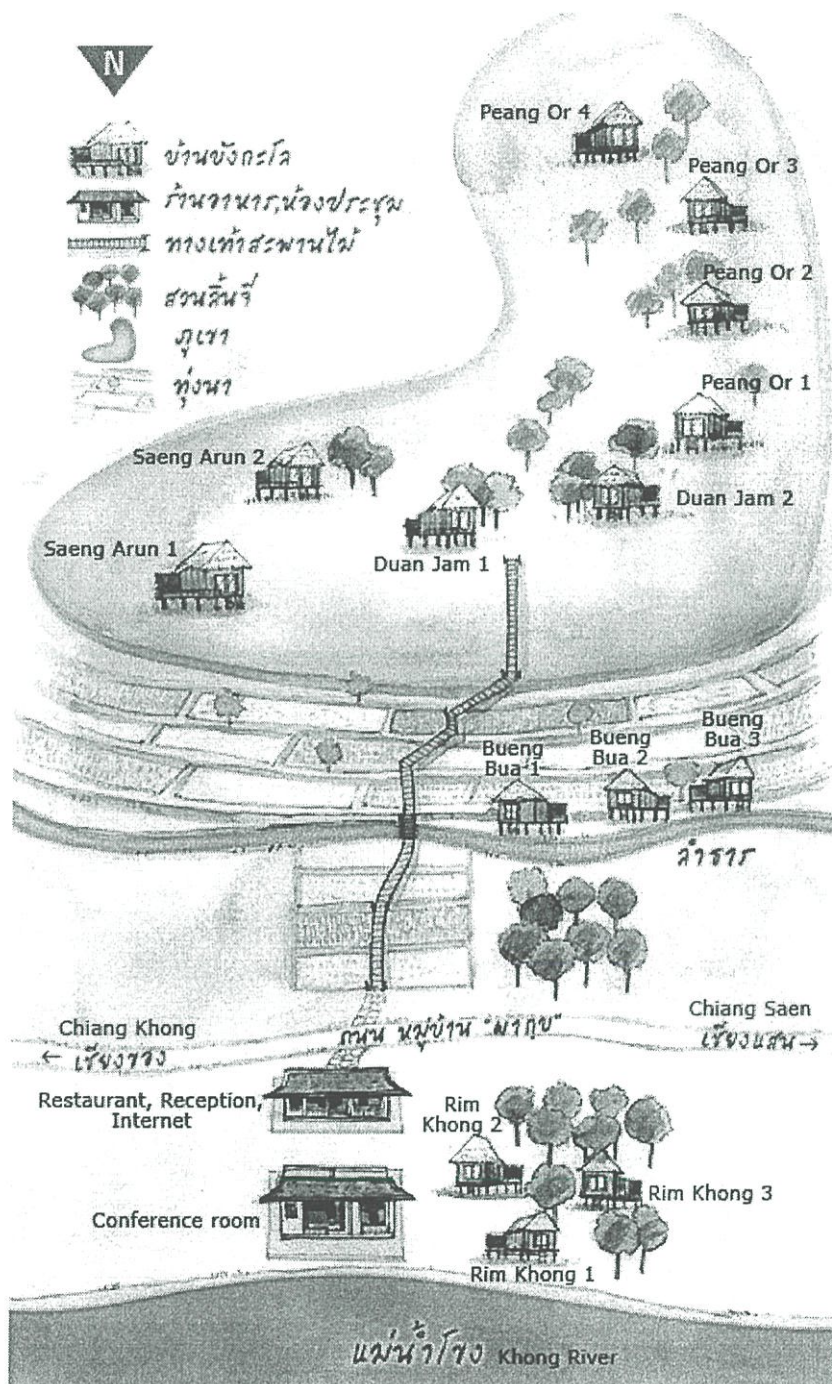 N
บ้านบังกะโล
ร้านอาหาร,ห้องประชุม
ทางเท้าสะพานไม้
สวนลิ้นจี่
ภูเขา
ทุ่งนา
Peang Or 4
Peang Or 3
Peang Or 2
Peang Or 1
Saeng Arun 2
Duan Jam 2
Saeng Arun 1
Duan Jam 1
Bueng
Bua 1
Bueng
Bua 2
Bueng
Bua 3
ลำธาร
Chiang Khong
← เชียงของ
ถนน หมู่บ้าน
Chiang Saen
เชียงแสน→
Restaurant, Reception,
Internet
Rim
Khong 2
Rim Khong 3
Conference room
Rim Khong 1
แม่น้ำโขง Khong River